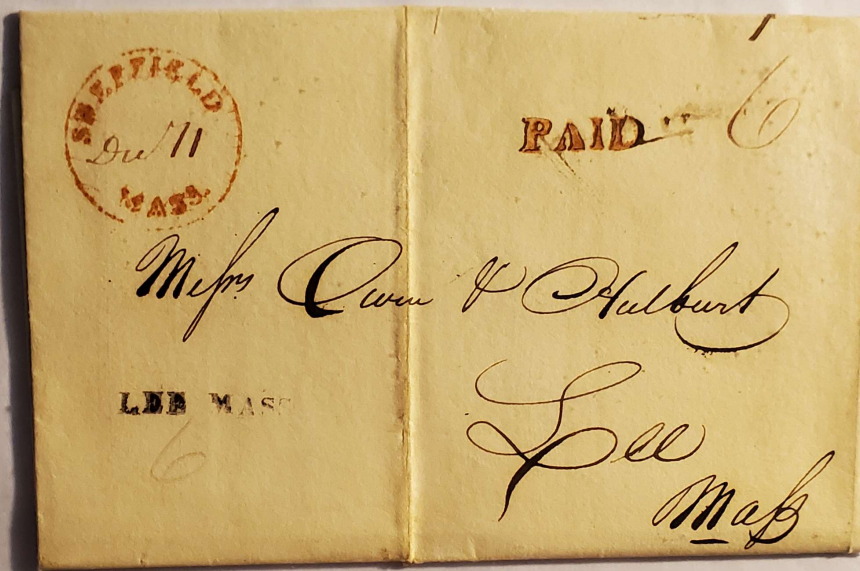 SHEFFIELD
Dec 11
MASS.
PAID 6
Messrs Owen & Hulburt
LEE MASS
6
Lee
Mass